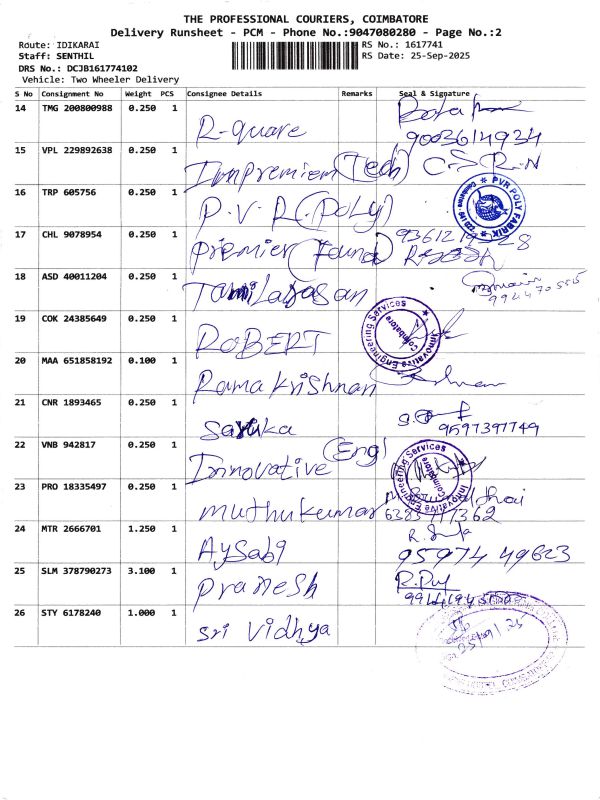 THE PROFESSIONAL COURIERS, COIMBATORE
Delivery Runsheet - PCM - Phone No.:9047080280 - Page No.:2
Route: IDIKARAI RS No.: 1617741
Staff: SENTHIL RS Date: 25-Sep-2025
DRS No.: DCJB161774102
Vehicle: Two Wheeler Delivery
S No Consignment No Weight PCS Consignee Details Remarks Seal & Signature
14 TMG 200800988 0.250 1 R-quare 9003614934
15 VPL 229892638 0.250 1 (Tech) C.S.R.N
16 TRP 605756 0.250 1 P.V.R.(POLY) PVR POLY FABRIK
17 CHL 9078954 0.250 1 Premier
18 ASD 40011204 0.250 1 Tamilarasan
19 COK 24385649 0.250 1 ROBERT Innovative Engineering Services Coimbatore
20 MAA 651858192 0.100 1 Rama Krishnan
21 CNR 1893465 0.250 1 9597397749
22 VNB 942817 0.250 1 Innovative (Eng) Innovative Engineering Services Coimbatore
23 PRO 18335497 0.250 1 Muthukumar
24 MTR 2666701 1.250 1 95974 49623
25 SLM 378790273 3.100 1 Pramesh
26 STY 6178240 1.000 1 Sri Vidhya 25/09/25